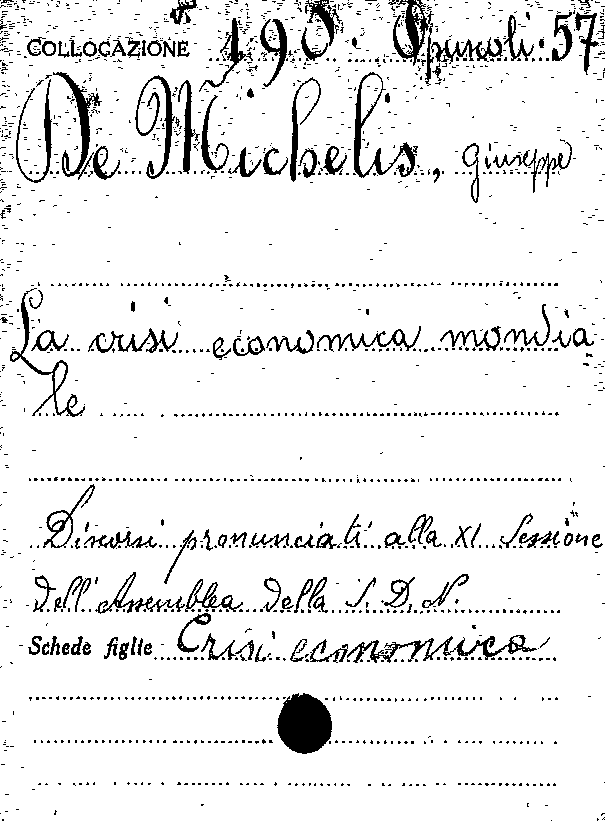 COLLOCAZIONE 190. Opuscoli. 57
De Michelis, Giuseppe
La crisi economica mondia
le
Discorsi pronunciati alla XI Sessione
dell'Assemblea della S. D. N.
Schede figlie Crisi economica